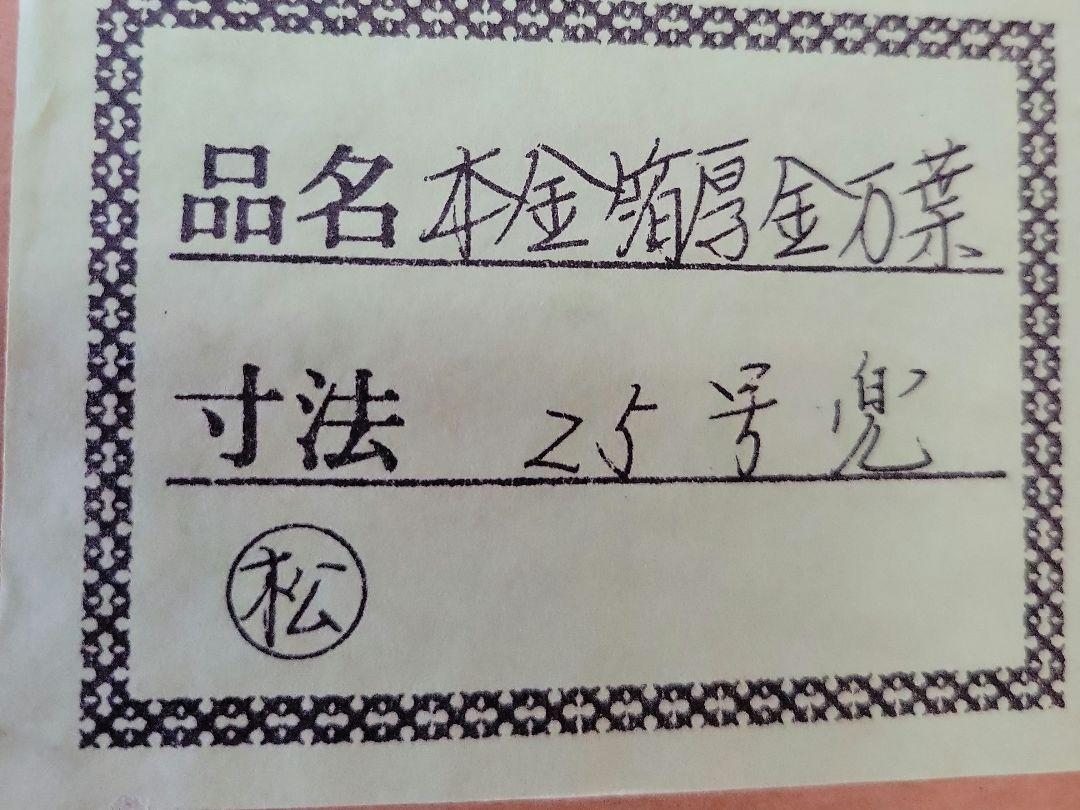 品名 本金箔厚金万葉
寸法 25号兜
松